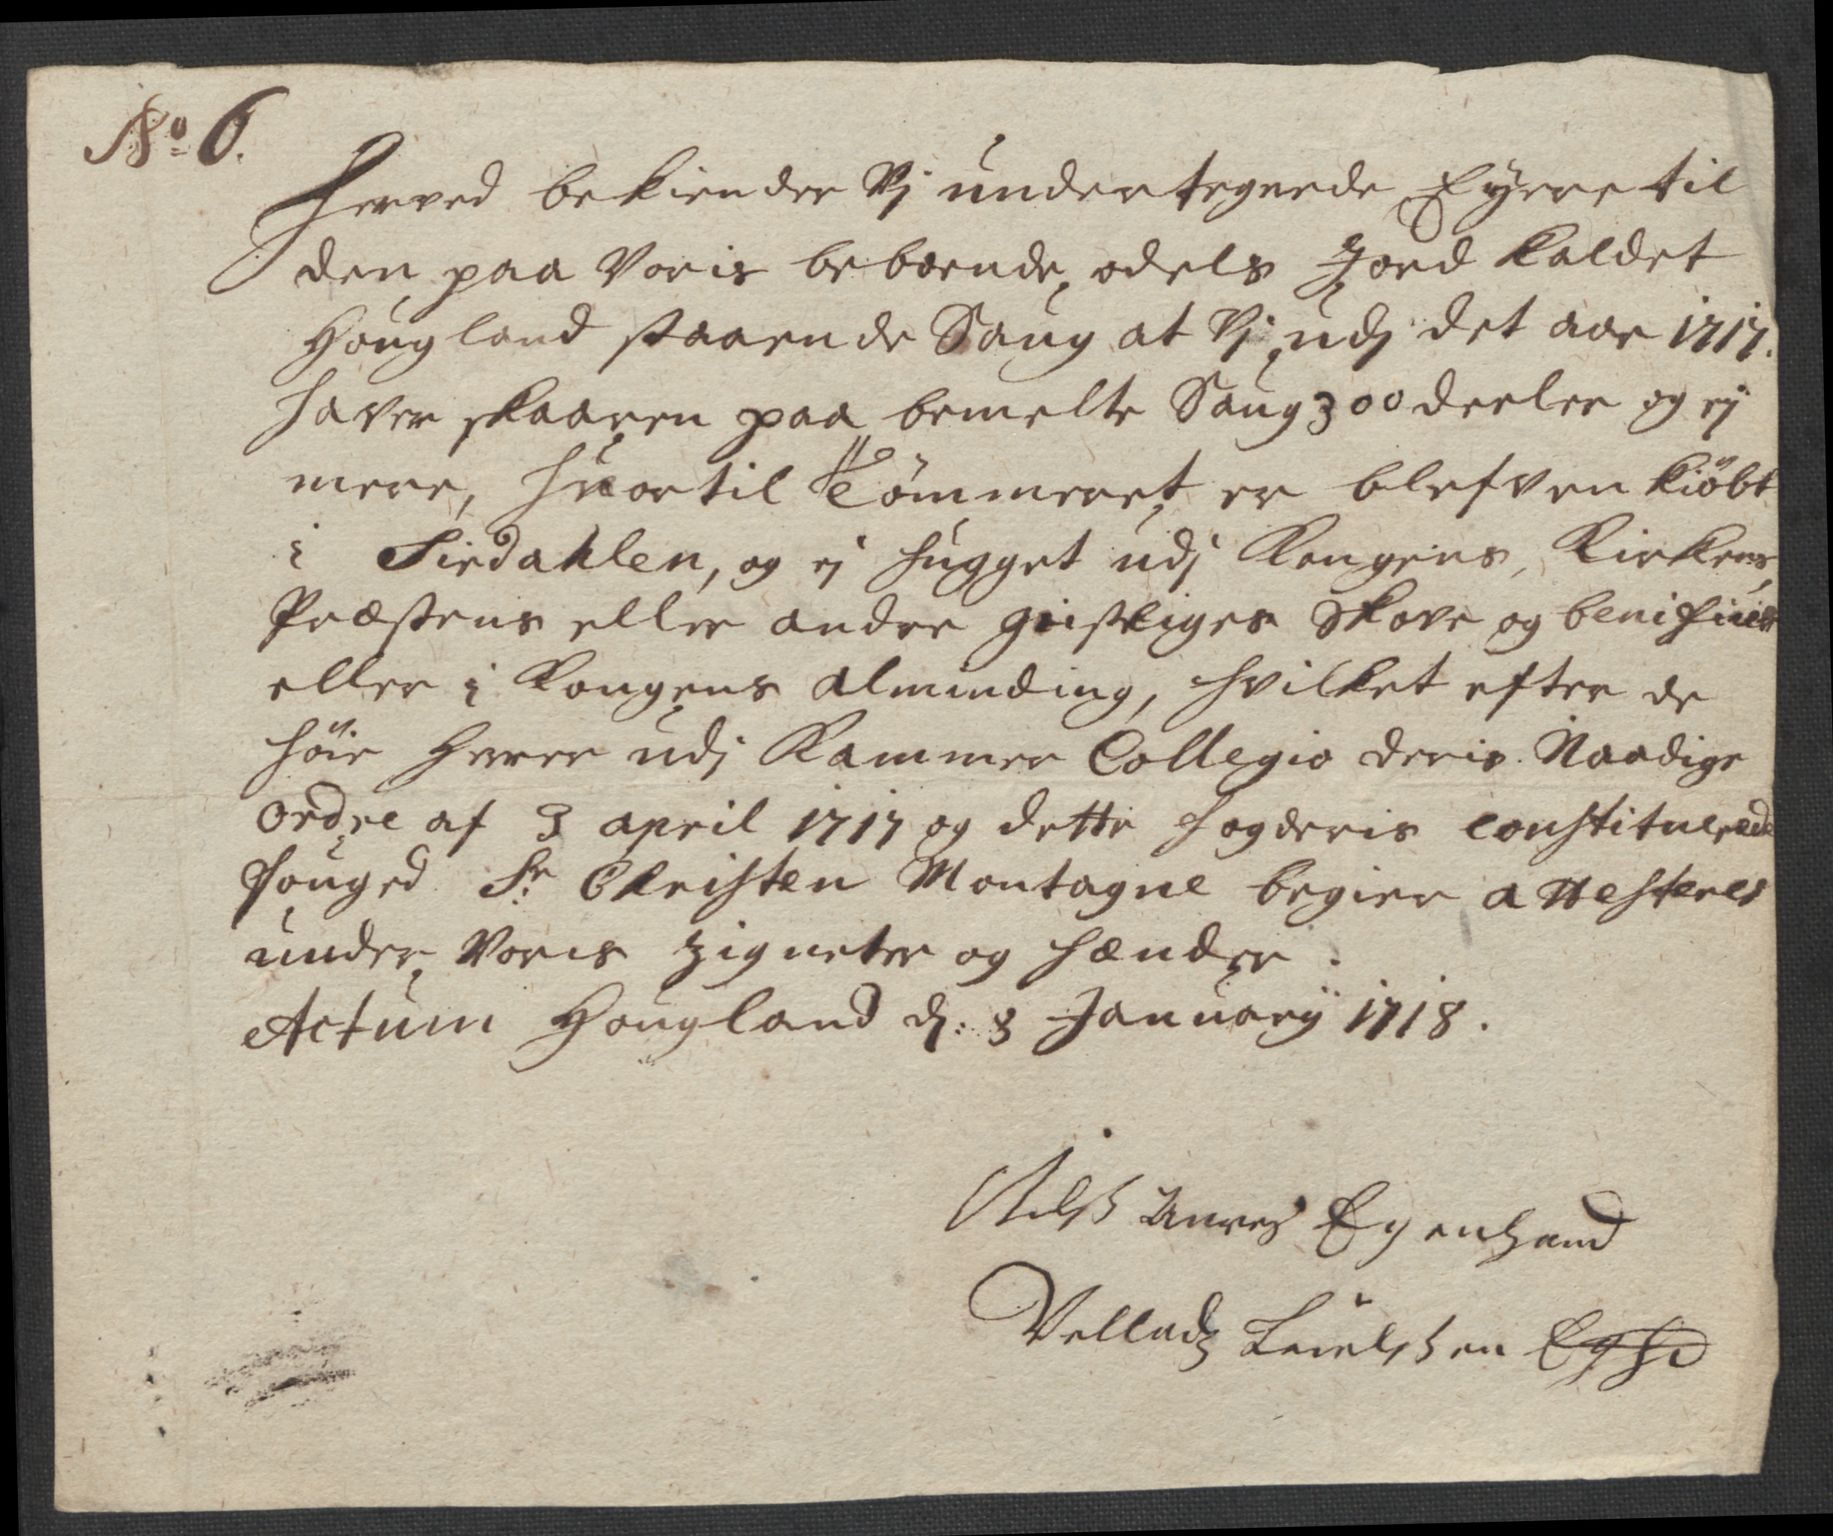 No 6.
Herved bekiender Vj undertegnede Eyere til
den paa Voris beboende odels Jord kaldet
Hougland staaende Saug at Vj udj det aar 1717.
haver skaaren paa bemelte Saug 300 deeler og ej
mere, hvortil Tömmeret er blefven kiöbt
i Sirdahlen, og ej hugget udj Kongens, Kirkens,
Præstens eller andre geistliges Skove og
eller i Kongens Alminding, hvilket efter de
höie Herrer udj Kammer Collegio deris Naadige
ordre af 3 april 1717 og dette fogderis constituerede
fouged Sr. Christen Montagne begier attesteres
under Voris zigneter og hænder.
Actum Hougland d: 3 January 1718.
Egenhand
Egh